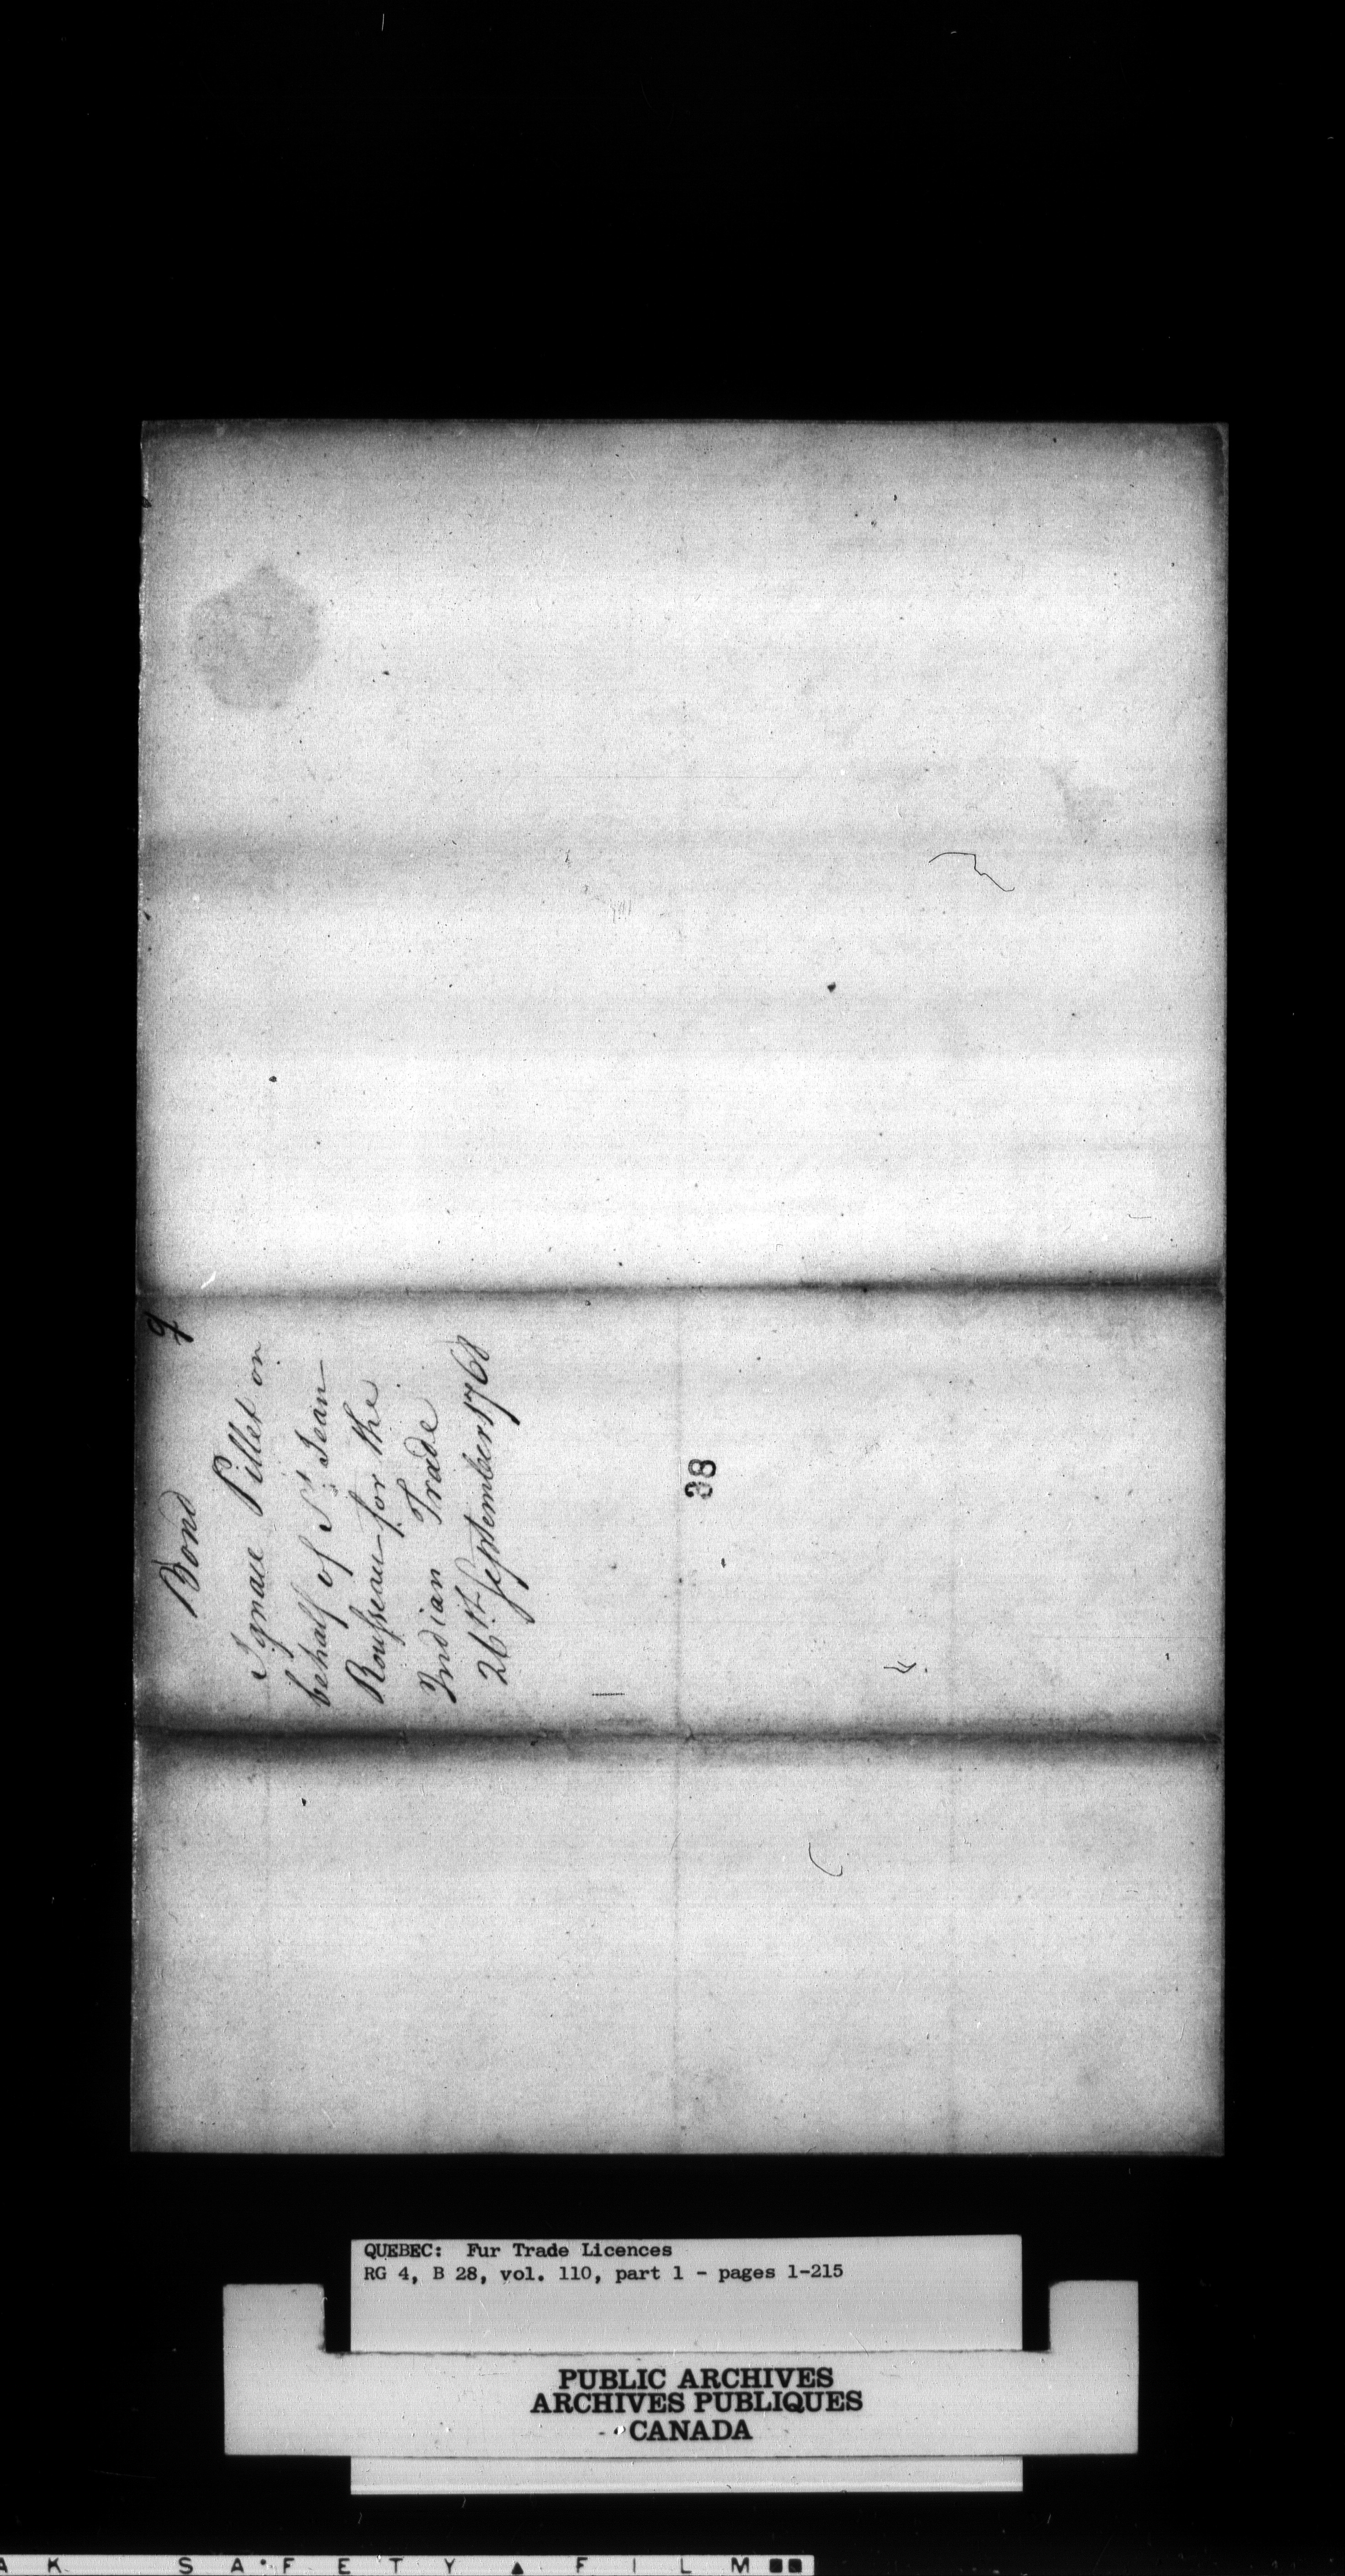 9
Bond
Ignace Pillet on
behalf of St. Jean
Rousseau for the
Indian Trade
26th. September 1768
38
QUEBEC: Fur Trade Licences
RG 4, B 28, vol. 110, part 1 - pages 1-215
PUBLIC ARCHIVES
ARCHIVES PUBLIQUES
CANADA
A K SAFETY ▲ FILM